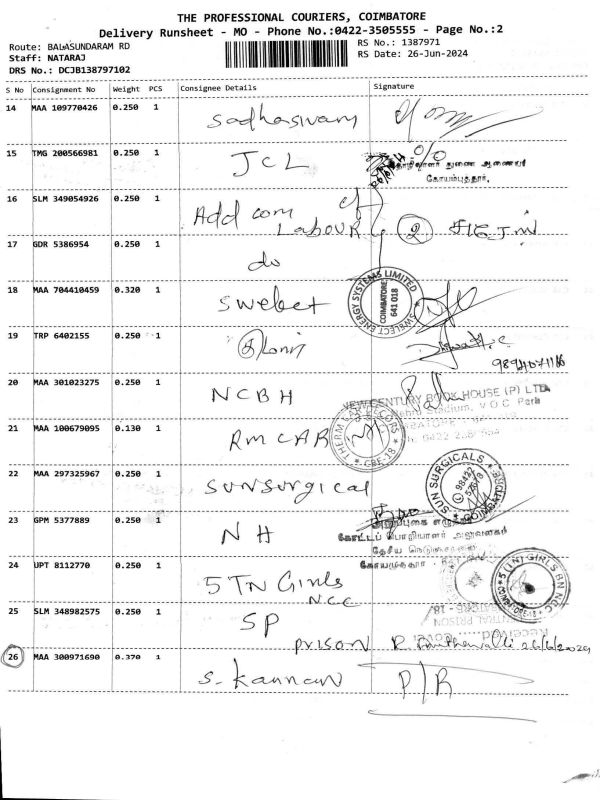 THE PROFESSIONAL COURIERS, COIMBATORE
Delivery Runsheet - MO - Phone No.:0422-3505555 - Page No.:2
Route: BALASUNDARAM RD RS No.: 1387971
Staff: NATARAJ RS Date: 26-Jun-2024
DRS No.: DCJB138797102
S No Consignment No Weight PCS Consignee Details Signature
14 MAA 109770426 0.250 1 Sadhasivam
15 TMG 200566981 0.250 1 JCL
துணை ஆணையர்
கோயம்புத்தூர்.
16 SLM 349054926 0.250 1 Add com
Labour 2
17 GDR 5386954 0.250 1 do
18 MAA 704410459 0.320 1 Swelect
SWELECT ENERGY SYSTEMS LIMITED
COIMBATORE
641 018
19 TRP 6402155 0.250 1
20 MAA 301023275 0.250 1 NCBH
NEW CENTURY BOOK HOUSE (P) LTD
V.O.C. Park
21 MAA 100679095 0.130 1 RMCAR
CBE-18
22 MAA 297325967 0.250 1 Sunsurgical
SUN SURGICALS
COIMBATORE
23 GPM 5377889 0.250 1 NH
கோட்டப் பொறியாளர் அலுவலகம்
தேசிய நெடுஞ்சாலை
கோயமுத்தூர்
24 UPT 8112770 0.250 1 5 TN Girls
NCC
5 (TN) GIRLS BN NCC
25 SLM 348982575 0.250 1 SP
Prison 26/6/2024
CENTRAL PRISON
Received
26 MAA 300971690 0.270 1 S. Kannan P/R